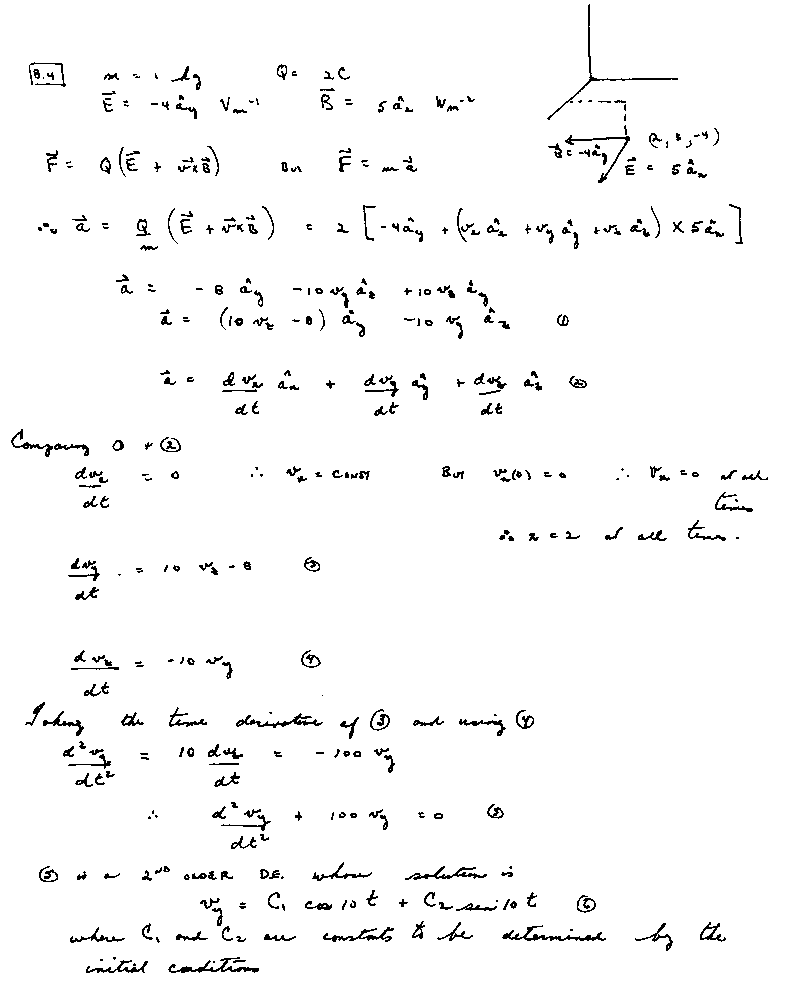 8.4 m = 1 kg Q = 2C
E⃗ = -4 â_y Vm⁻¹ B⃗ = 5 â_x Wm⁻²
(2, 3, -4)
B⃗ = -4â_y
E⃗ = 5 â_x
F⃗ = Q(E⃗ + v⃗×B⃗) BUT F⃗ = m a⃗
∴ a⃗ = Q/m (E⃗ + v⃗×B⃗) = 2 [-4â_y + (v_x â_x + v_y â_y + v_z â_z) × 5â_x]
a⃗ = -8 â_y -10 v_y â_z +10 v_z â_y
a⃗ = (10 v_z - 8) â_y -10 v_y â_z ①
a⃗ = dv_x/dt â_x + dv_y/dt â_y + dv_z/dt â_z ②
Comparing ① + ②
dv_x/dt = 0 ∴ v_x = CONST BUT v_x(0) = 0 ∴ v_x = 0 at all times
∴ x = 2 at all times.
dv_y/dt = 10 v_z - 8 ③
dv_z/dt = -10 v_y ④
Taking the time derivative of ③ and using ④
d²v_y/dt² = 10 dv_z/dt = -100 v_y
∴ d²v_y/dt² + 100 v_y = 0 ⑤
⑤ is a 2ND ORDER D.E. whose solution is
v_y = C₁ cos 10t + C₂ sin 10t ⑥
where C₁ and C₂ are constants to be determined by the
initial conditions